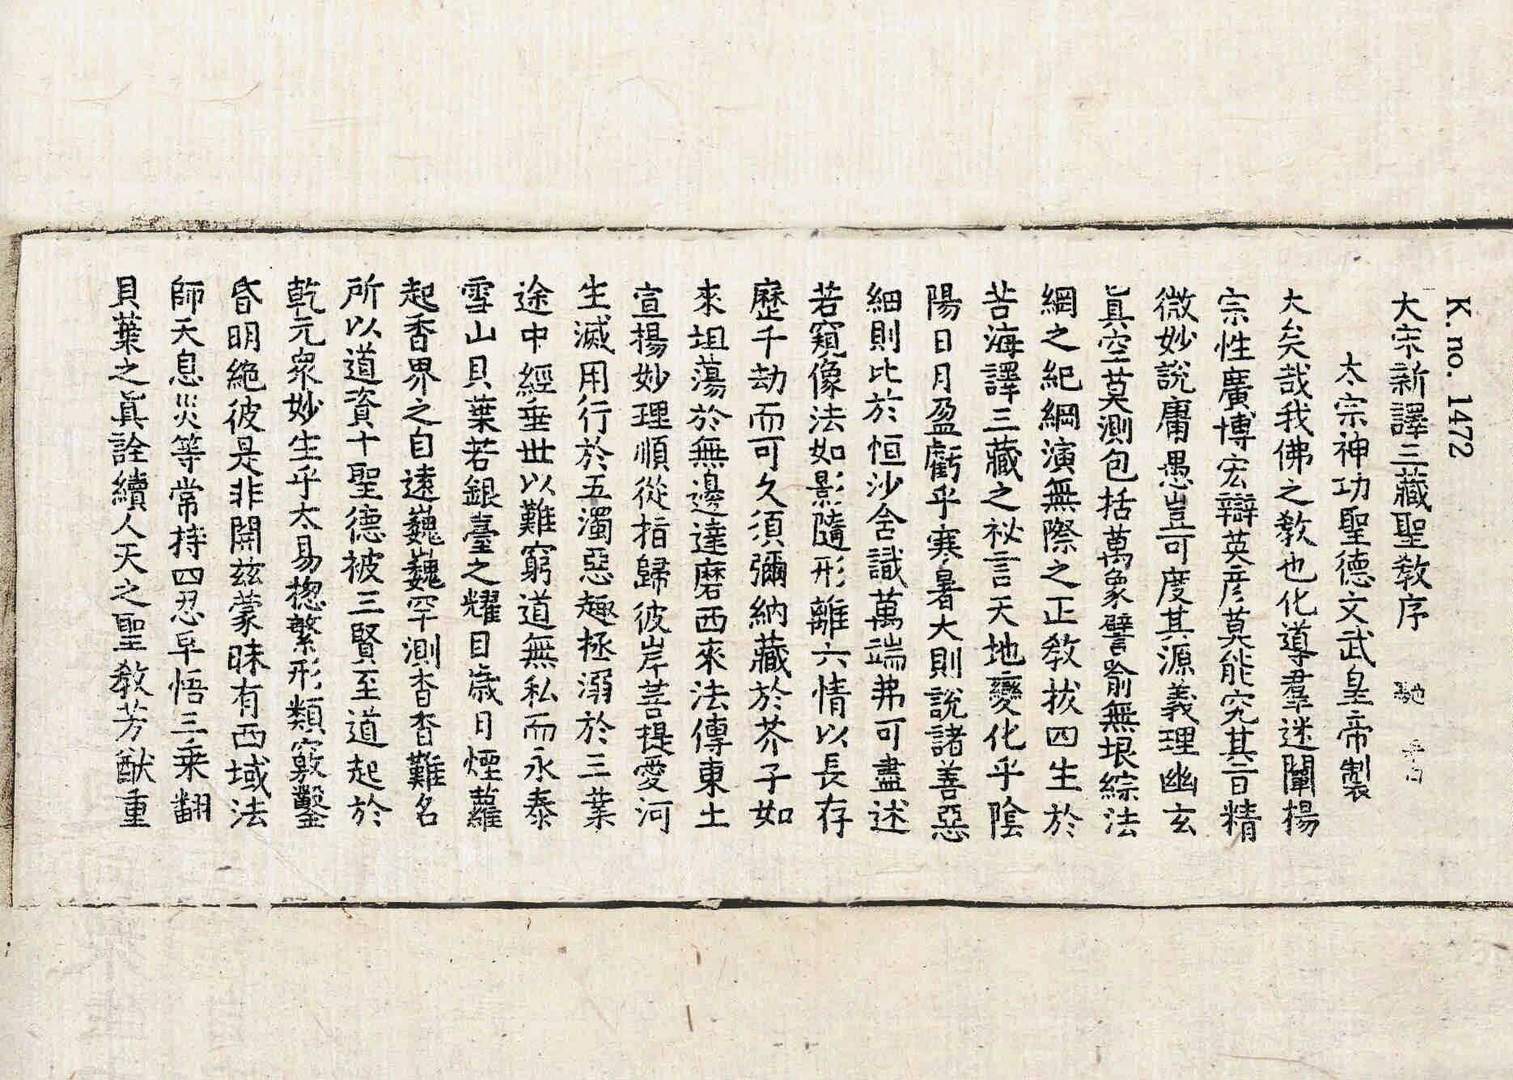 K. no. 1472
大宋新譯三藏聖教序 馳
太宗神功聖德文武皇帝製
大矣哉我佛之教也化導羣迷闡揚
宗性廣博宏辯英彦莫能究其旨精
微妙說庸愚豈可度其源義理幽玄
眞空莫測包括萬象譬喻無垠綜法
綱之紀綱演無際之正教拔四生於
苦海譯三藏之祕言天地變化乎陰
陽日月盈虧乎寒暑大則說諸善惡
細則比於恒沙含識萬端弗可盡述
若窺像法如影隨形離六情以長存
歷千劫而可久須彌納藏於芥子如
來坦蕩於無邊達磨西來法傳東土
宣揚妙理順從指歸彼岸菩提愛河
生滅用行於五濁惡趣拯溺於三業
途中經垂世以難窮道無私而永泰
雪山貝葉若銀臺之耀目歲月煙蘿
起香界之自遠巍巍罕測杳杳難名
所以道資十聖德被三賢至道起於
乾元衆妙生乎太易揔繁形類竅鑿
昏明絶彼是非開玆蒙昧有西域法
師天息災等常持四忍早悟三乘翻
貝葉之眞詮續人天之聖教芳猷重